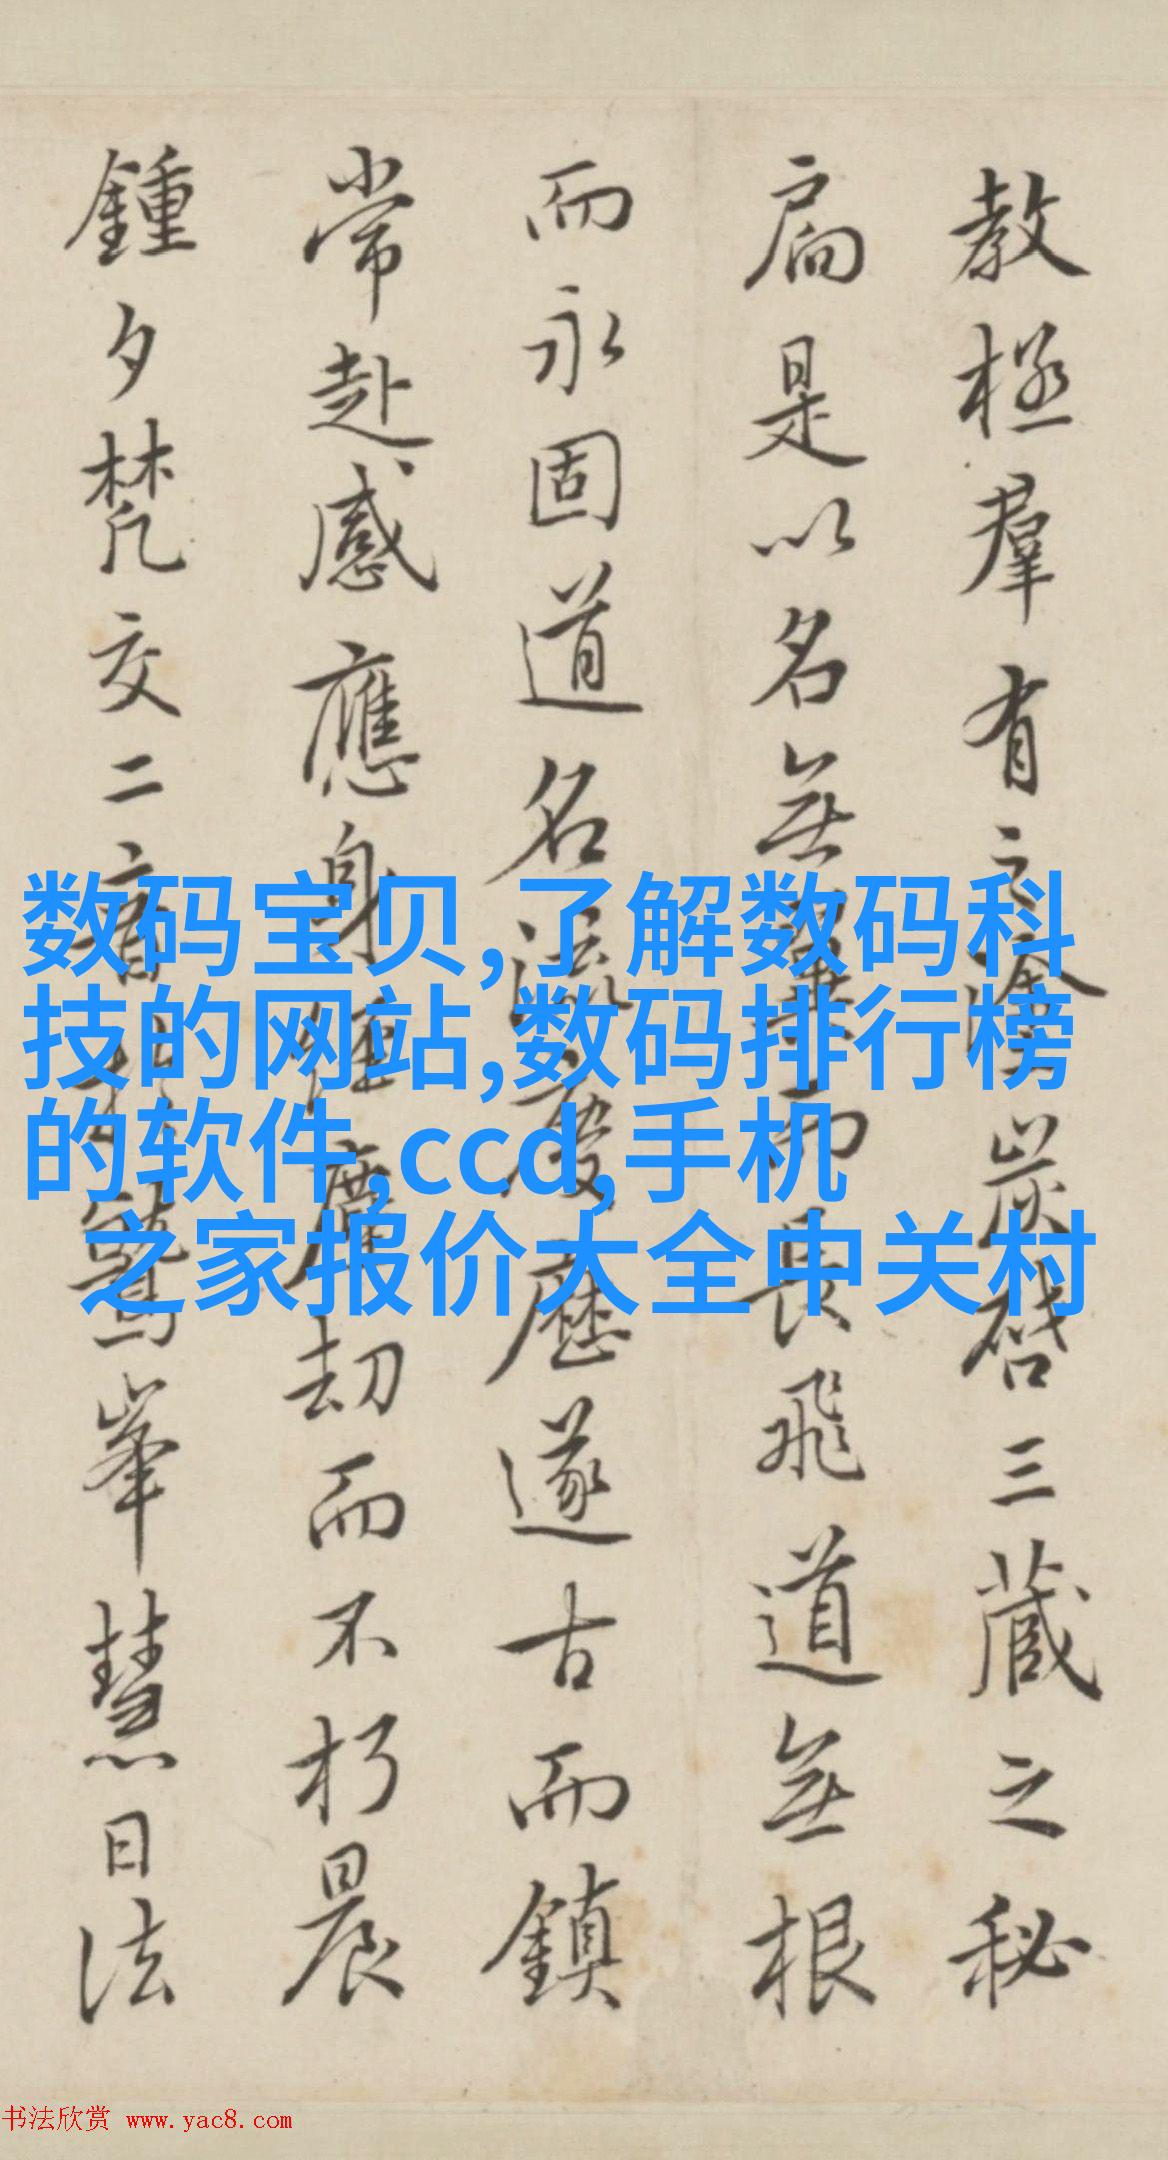 教極羣有之塗炭啓三藏之秘
扃是以名無翼而長飛道無根
而永固道名流慶歷遂古而鎮
常赴感應身經塵劫而不朽晨
鍾夕梵交二音於鷲峯慧日法
数码宝贝,了解数码科
技的网站,数码排行榜
的软件,ccd,手机
之家报价大全中关村
书法欣赏 www.yac8.com